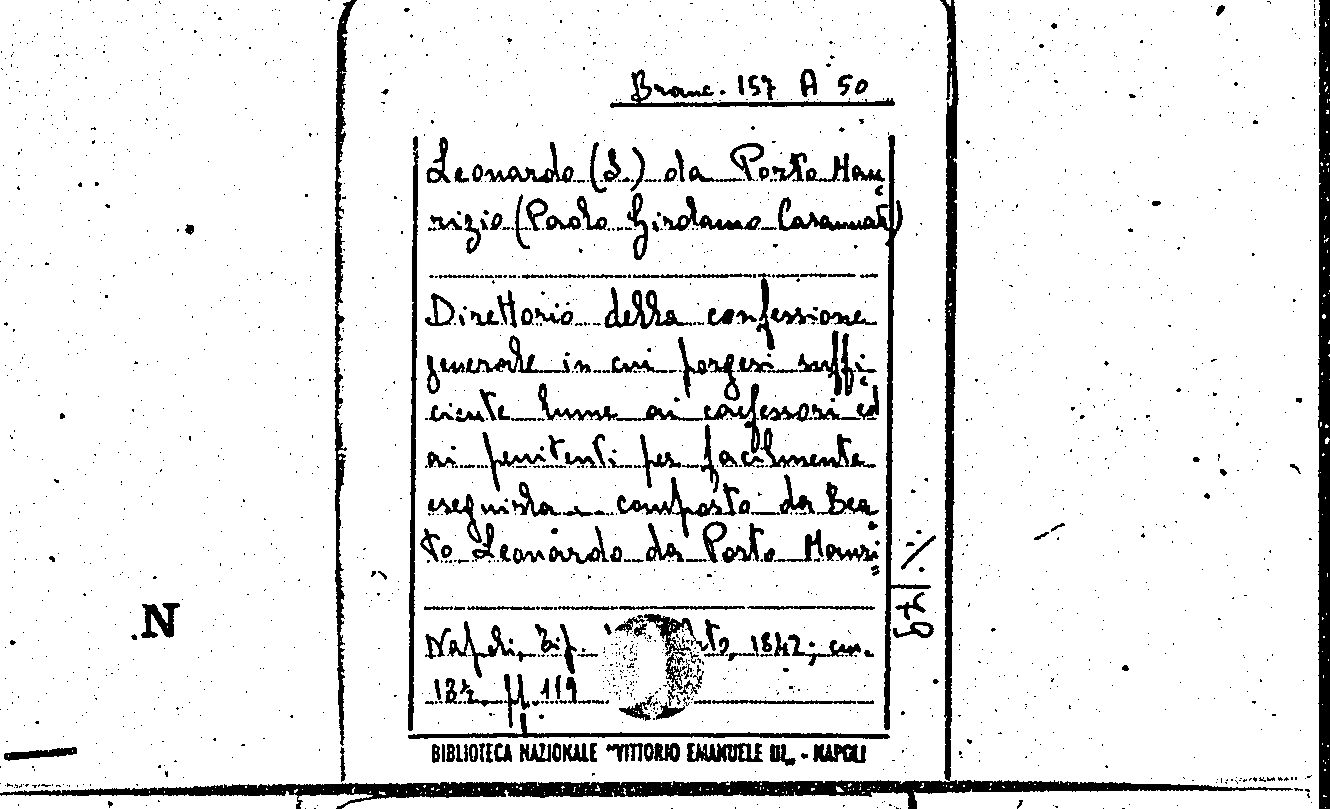 Branc. 157 A 50
Leonardo (S.) da Porto Mau=
rizio (Paolo Girolamo Casanuat)
Direttorio della confessione
generale in cui porgesi suffi=
ciente lume ai confessori ed
ai penitenti per facilmente
eseguirla ... composto da Bea=
to Leonardo da Porto Mauri=
Napoli, Tip. 1842; cm.
18x pp. 119
BIBLIOTECA NAZIONALE "VITTORIO EMANUELE III„ - NAPOLI
N